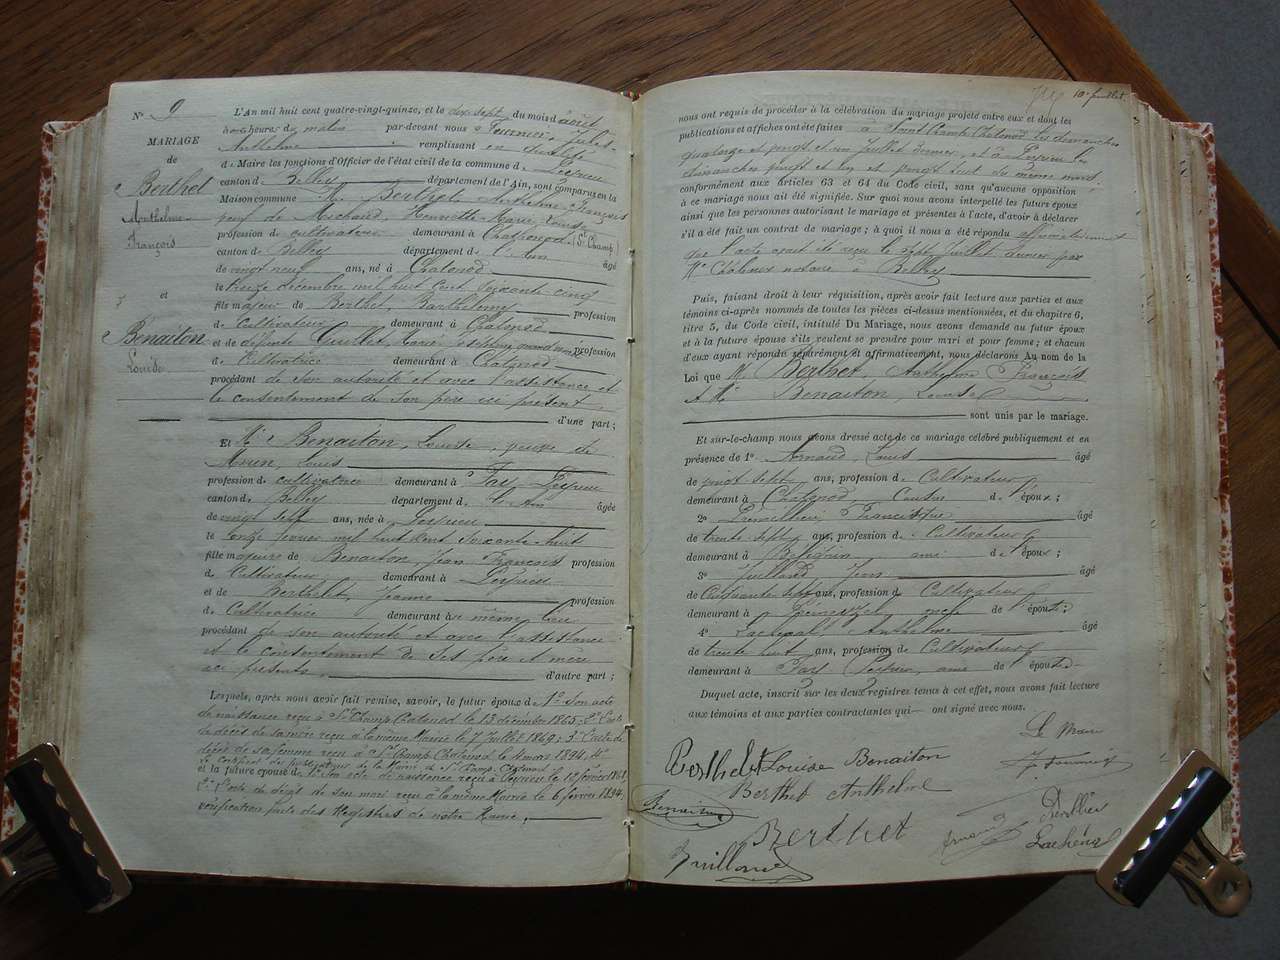 N° 9
MARIAGE
de
Berthet
Anthelme
François
et
Benaiton
Louise
L'An mil huit cent quatre-vingt-quinze, et le dix sept du mois d'août
heures du matin par-devant nous Fournier, Jules
Anthelme remplissant en
d. Maire les fonctions d'Officier de l'état civil de la commune d. Peyrieu
canton d. Belley département de l'Ain, sont comparus en la
Maison commune M. Berthet, Anthelme François
veuf de Michaud, Henriette Marie Louise
profession de cultivateur demeurant à Chatonod (St Champ)
canton d. Belley département d. l'Ain âgé
de vingt neuf ans, né à Chatonod
le treize décembre mil huit cent soixante-cinq
fils majeur de Berthet, Barthélemy profession
d. cultivateur demeurant à Chatonod
et de défunte Guillet, Marie profession
d. Cultivatrice demeurant à Chatonod
procédant de son autorité et avec l'assistance et
le consentement de son père ici présent
d'une part ;
Et Mme Benaiton, Louise, veuve de
Morin, Louis
profession d. cultivatrice demeurant à Fay, Peyrieu
canton d. Belley département d. l'Ain âgée
de vingt sept ans, née à Peyrieu
le février mil huit cent soixante-huit
fille majeure de Benaiton, Jean François profession
d. Cultivateur demeurant à Peyrieu
et de Berthet, Jeanne profession
d. Cultivatrice demeurant au même lieu
procédant de son autorité et avec l'assistance
et le consentement de ses père et mère
ici présents, d'autre part ;
Lesquels, après nous avoir fait remise, savoir, le futur époux d. 1° Son acte
de naissance reçu à St Champ Chatonod le 13 décembre 1865 ; 2° l'acte
de décès de sa mère reçu à la même Mairie le 7 Juillet 1869 ; 3° l'acte de
décès de sa femme reçu à St Champ Chatonod le 4 mars 1894, 4°
le certificat de publication de la Mairie de St Champ Chatonod
et la future épouse d. 1° Son acte de naissance reçu à Peyrieu le 12 février 1868,
2° l'acte de décès de son mari reçu à la même Mairie le 6 février 1894,
vérification faite des Registres de notre Mairie,
10e feuillet
nous ont requis de procéder à la célébration du mariage projeté entre eux et dont les
publications et affiches ont été faites à Saint Champ Chatonod les dimanches
quatorze et vingt et un Juillet dernier, et à Peyrieu les
dimanches vingt et un et vingt huit du même mois,
conformément aux articles 63 et 64 du Code civil, sans qu'aucune opposition
à ce mariage nous ait été signifiée. Sur quoi nous avons interpellé les futurs époux
ainsi que les personnes autorisant le mariage et présentes à l'acte, d'avoir à déclarer
s'il a été fait un contrat de mariage ; à quoi il nous a été répondu affirmativement
que l'acte avait été reçu le sept Juillet dernier par
Me notaire à Belley
Puis, faisant droit à leur réquisition, après avoir fait lecture aux parties et aux
témoins ci-après nommés de toutes les pièces ci-dessus mentionnées, et du chapitre 6,
titre 5, du Code civil, intitulé Du Mariage, nous avons demandé au futur époux
et à la future épouse s'ils veulent se prendre pour mari et pour femme ; et chacun
d'eux ayant répondu séparément et affirmativement, nous déclarons Au nom de la
Loi que M. Berthet, Anthelme François
et Me Benaiton, Louise
sont unis par le mariage.
Et sur-le-champ nous avons dressé acte de ce mariage célébré publiquement et en
présence de 1° Arnaud, Louis âgé
de vingt sept ans, profession d. Cultivateur
demeurant à Chatonod, Cousin d. l'époux ;
2° Francisque âgé
de trente sept ans, profession d. Cultivateur
demeurant à ami de l'époux ;
3° Juilland, Jean âgé
de Cinquante sept ans, profession d. Cultivateur
demeurant à de l'épouse ;
4° Anthelme âgé
de trente huit ans, profession d. Cultivateur
demeurant à Fay Peyrieu, ami de l'épouse
Duquel acte, inscrit sur les deux registres tenus à cet effet, nous avons fait lecture
aux témoins et aux parties contractantes qui ont signé avec nous.
Le Maire
Berthet Louise Benaiton
J. Fournier
Berthet Anthelme
Benaiton
Berthet
Arnaud
Juilland